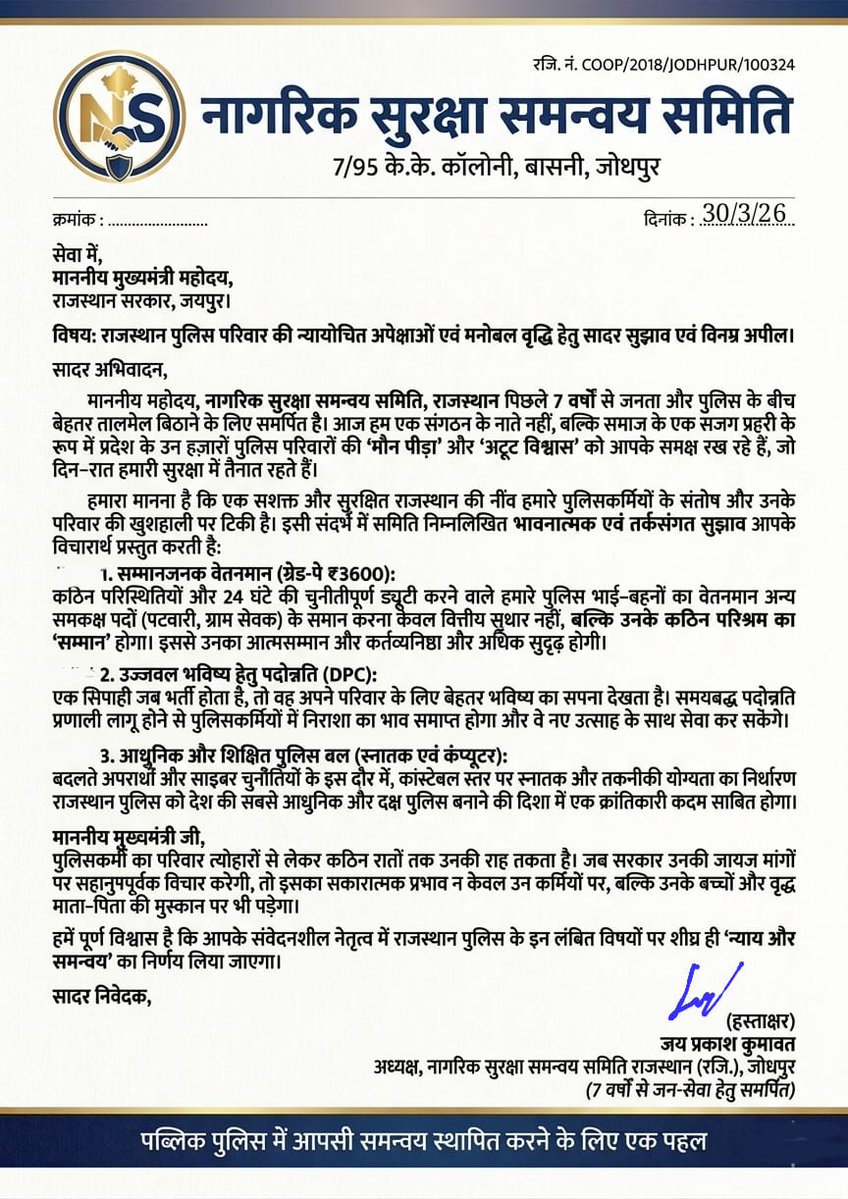 रजि. नं. COOP/2018/JODHPUR/100324
NS
नागरिक सुरक्षा समन्वय समिति
7/95 के.के. कॉलोनी, बासनी, जोधपुर
क्रमांक : .........................
दिनांक : 30/3/26
सेवा में,
माननीय मुख्यमंत्री महोदय,
राजस्थान सरकार, जयपुर।
विषय: राजस्थान पुलिस परिवार की न्यायोचित अपेक्षाओं एवं मनोबल वृद्धि हेतु सादर सुझाव एवं विनम्र अपील।
सादर अभिवादन,
माननीय महोदय, नागरिक सुरक्षा समन्वय समिति, राजस्थान पिछले 7 वर्षों से जनता और पुलिस के बीच
बेहतर तालमेल बिठाने के लिए समर्पित है। आज हम एक संगठन के नाते नहीं, बल्कि समाज के एक सजग प्रहरी के
रूप में प्रदेश के उन हज़ारों पुलिस परिवारों की ‘मौन पीड़ा’ और ‘अटूट विश्वास’ को आपके समक्ष रख रहे हैं, जो
दिन–रात हमारी सुरक्षा में तैनात रहते हैं।
हमारा मानना है कि एक सशक्त और सुरक्षित राजस्थान की नींव हमारे पुलिसकर्मियों के संतोष और उनके
परिवार की खुशहाली पर टिकी है। इसी संदर्भ में समिति निम्नलिखित भावनात्मक एवं तर्कसंगत सुझाव आपके
विचारार्थ प्रस्तुत करती है:
1. सम्मानजनक वेतनमान (ग्रेड-पे ₹3600):
कठिन परिस्थितियों और 24 घंटे की चुनौतीपूर्ण ड्यूटी करने वाले हमारे पुलिस भाई–बहनों का वेतनमान अन्य
समकक्ष पदों (पटवारी, ग्राम सेवक) के समान करना केवल वित्तीय सुधार नहीं, बल्कि उनके कठिन परिश्रम का
‘सम्मान’ होगा। इससे उनका आत्मसम्मान और कर्तव्यनिष्ठा और अधिक सुदृढ़ होगी।
2. उज्जवल भविष्य हेतु पदोन्नति (DPC):
एक सिपाही जब भर्ती होता है, तो वह अपने परिवार के लिए बेहतर भविष्य का सपना देखता है। समयबद्ध पदोन्नति
प्रणाली लागू होने से पुलिसकर्मियों में निराशा का भाव समाप्त होगा और वे नए उत्साह के साथ सेवा कर सकेंगे।
3. आधुनिक और शिक्षित पुलिस बल (स्नातक एवं कंप्यूटर):
बदलते अपराधों और साइबर चुनौतियों के इस दौर में, कांस्टेबल स्तर पर स्नातक और तकनीकी योग्यता का निर्धारण
राजस्थान पुलिस को देश की सबसे आधुनिक और दक्ष पुलिस बनाने की दिशा में एक क्रांतिकारी कदम साबित होगा।
माननीय मुख्यमंत्री जी,
पुलिसकर्मी का परिवार त्योहारों से लेकर कठिन रातों तक उनकी राह तकता है। जब सरकार उनकी जायज मांगों
पर सहानुषपूर्वक विचार करेगी, तो इसका सकारात्मक प्रभाव न केवल उन कर्मियों पर, बल्कि उनके बच्चों और वृद्ध
माता-पिता की मुस्कान पर भी पड़ेगा।
हमें पूर्ण विश्वास है कि आपके संवेदनशील नेतृत्व में राजस्थान पुलिस के इन लंबित विषयों पर शीघ्र ही ‘न्याय और
समन्वय’ का निर्णय लिया जाएगा।
सादर निवेदक,
(हस्ताक्षर)
जय प्रकाश कुमावत
अध्यक्ष, नागरिक सुरक्षा समन्वय समिति राजस्थान (रजि.), जोधपुर
(7 वर्षों से जन-सेवा हेतु समर्पित)
पब्लिक पुलिस में आपसी समन्वय स्थापित करने के लिए एक पहल